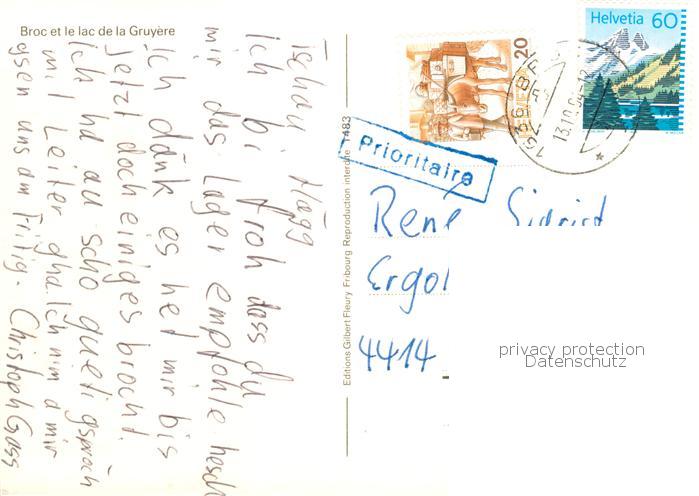 Broc et le lac de la Gruyère
Tschau Hägg
Ich bi froh dass du
mir das Lager empfohle hesch
Ich dänk es het mir bis
jetzt doch einiges brocht.
Ich ha au scho gueti gspräch
mit Leiter gha. Ich nim a mir
gsen uns am Fritig. Christoph Gass
Editions Gilbert Fleury Fribourg Reproduction interdite 1483
20
HELVETIA
Helvetia 60
1636 BROC
13.10.94-12
Prioritaire
René Sigrist
Ergol
4414
privacy protection
Datenschutz